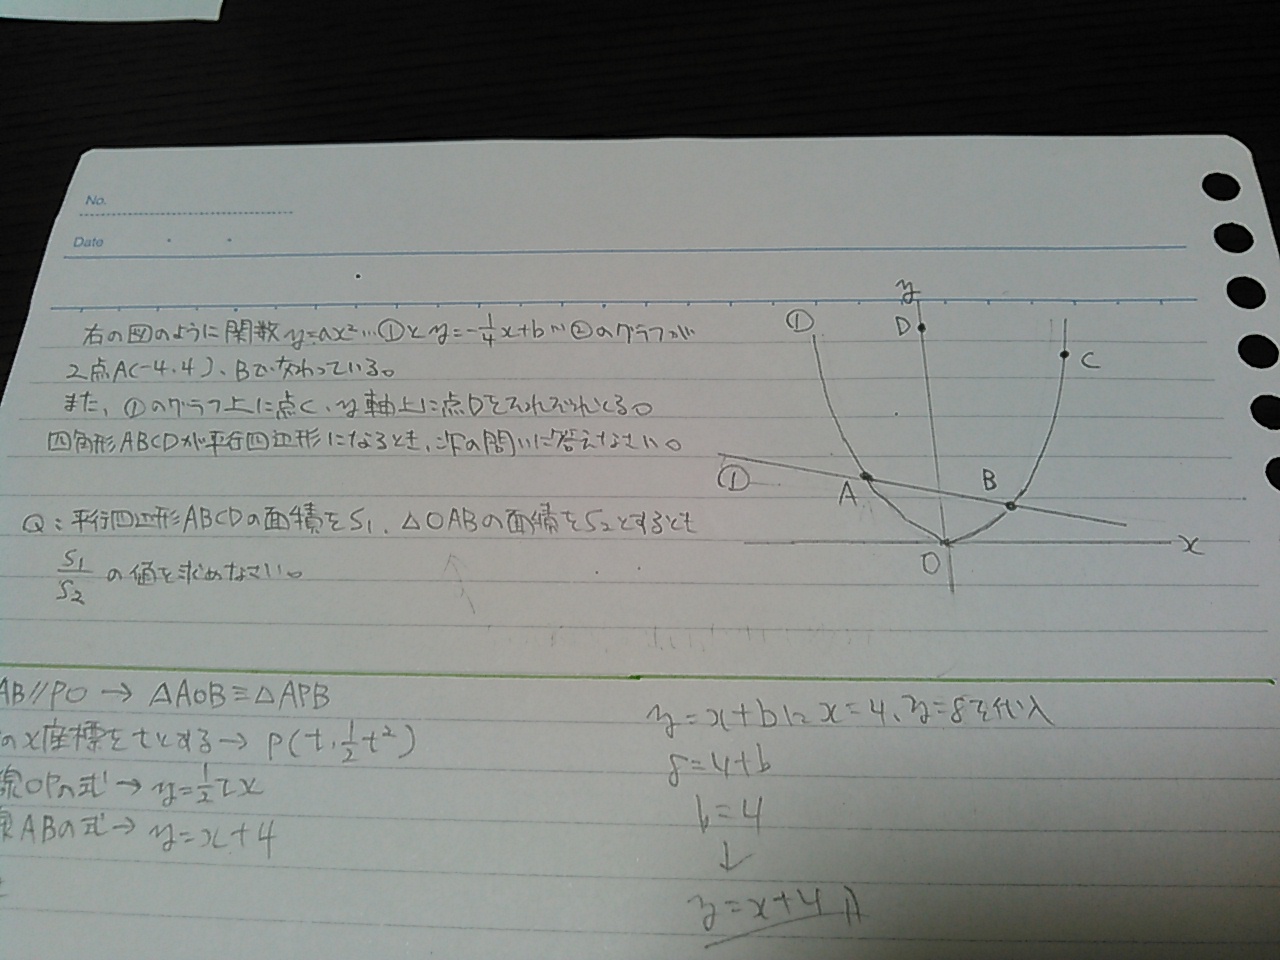 No.
Date
右の図のように関数y=ax²…①とy=-1/4x+b…②のグラフが
2点A(-4,4)、Bで交わっている。
また、①のグラフ上に点C、y軸上に点Dをそれぞれとる。
四角形ABCDが平行四辺形になるとき、次の問いに答えなさい。
Q:平行四辺形ABCDの面積をS₁、△OABの面積をS₂とするとき
S₁/S₂の値を求めなさい。
①
y
D
C
①
A
B
O
x
AB//PO → △AOB≡△APB
のx座標をtとする→ P(t,1/2t²)
線OPの式→ y=1/2tx
ABの式→ y=x+4
y=x+bにx=4、y=8を代入
8=4+b
b=4
↓
y=x+4